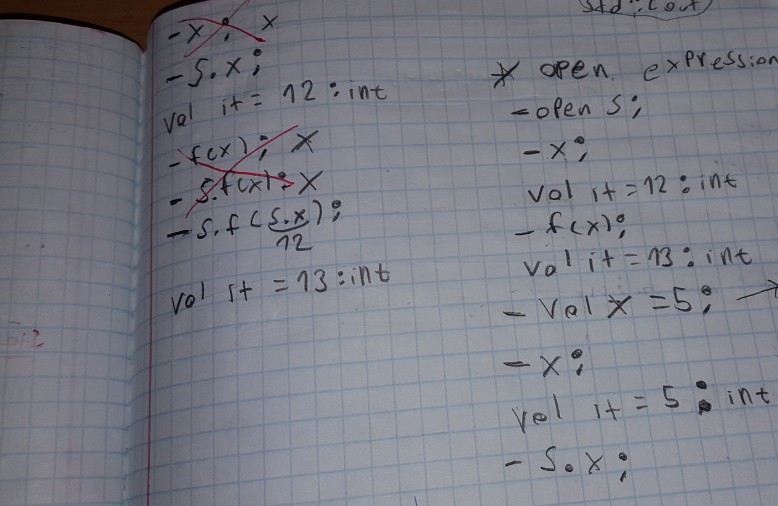 - x ; x
- S.x ;
val it = 12 : int
- f(x) ; X
- S.f(x) ; X
- S.f(S.x) ;
12
val it = 13 : int
std::cout
* open expression
- open S ;
- x ;
val it = 12 : int
- f(x) ;
val it = 13 : int
- val x = 5 ; →
- x ;
val it = 5 : int
- S.x ;